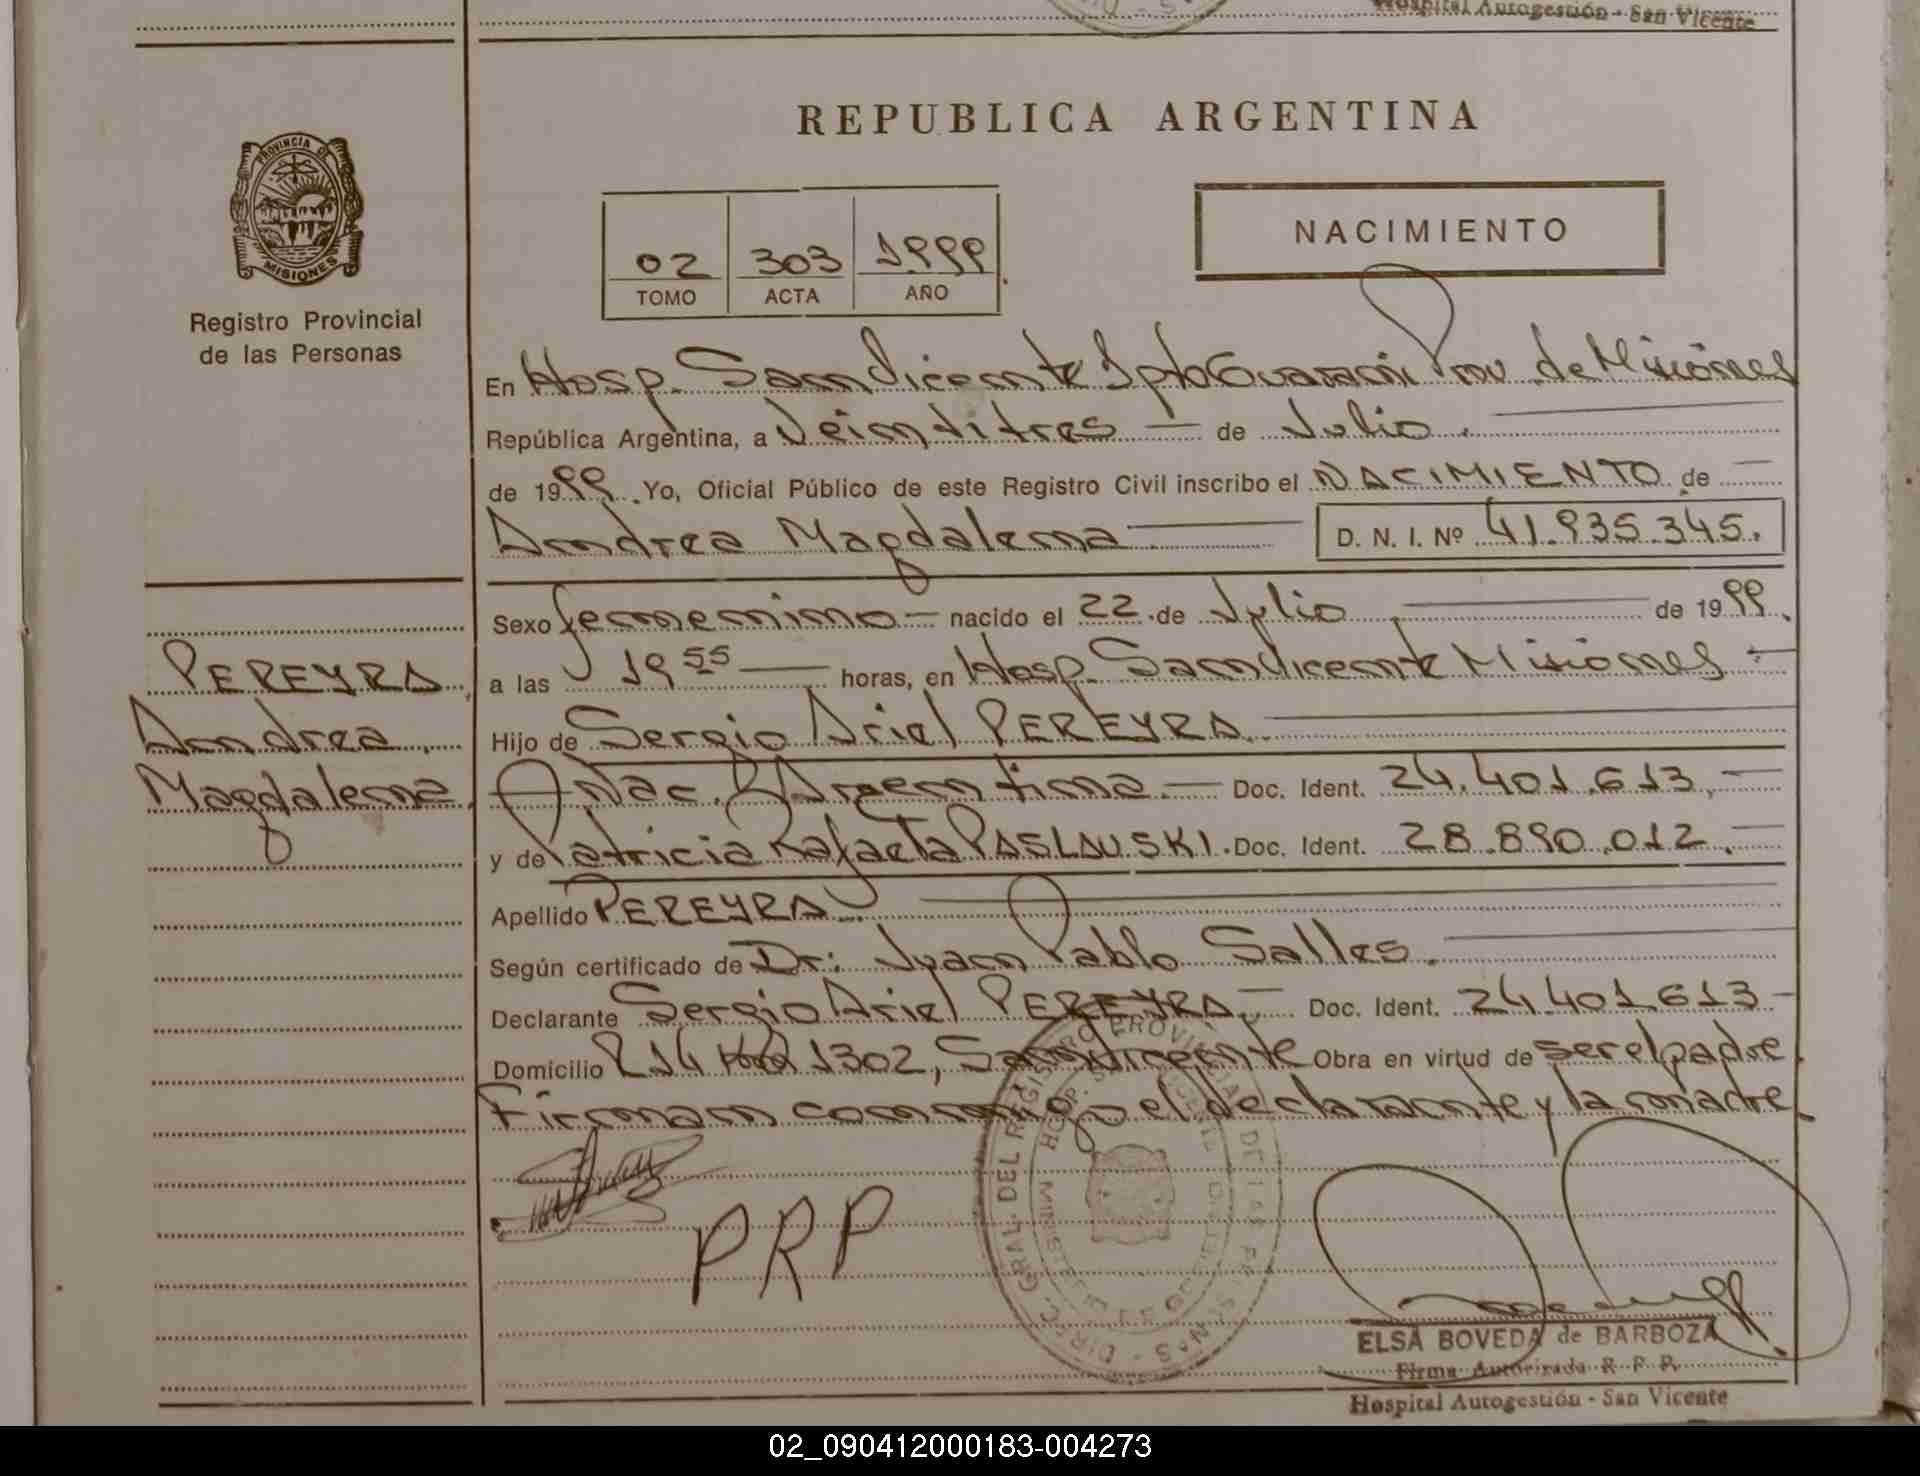 Hospital Autogestión - San Vicente
PROVINCIA DE
MISIONES
Registro Provincial
de las Personas
REPUBLICA ARGENTINA
NACIMIENTO
02 303 1999
TOMO ACTA AÑO
En Hosp. San Vicente Dpto Guaraní Prov. de Misiones
República Argentina, a Veintitres — de Julio.
de 1999. Yo, Oficial Público de este Registro Civil inscribo el NACIMIENTO de
Andrea Magdalena D. N. I. Nº 41.935.345.
Sexo femenino — nacido el 22 de Julio de 1999.
a las 19 55 horas, en Hosp. San Vicente Misiones
Hijo de Sergio Ariel PEREYRA
Nac. Argentina. — Doc. Ident. 24.401.613.
y de Patricia Rafaela PASLAUSKI. Doc. Ident. 28.890.012.
Apellido PEREYRA
Según certificado de Dr: Juan Pablo Salles.
Declarante Sergio Ariel PEREYRA. Doc. Ident. 24.401.613
Domicilio R14 Km 1302, San Vicente Obra en virtud de ser el padre.
Firman conmigo el declarante y la madre
PEREYRA,
Andrea
Magdalena.
PRP
DIREC. GRAL. DEL REGISTRO PROVINCIAL DE LAS PERSONAS
ELSA BOVEDA de BARBOZA
Firma Autorizada R. P. P.
Hospital Autogestión - San Vicente
02_090412000183-004273